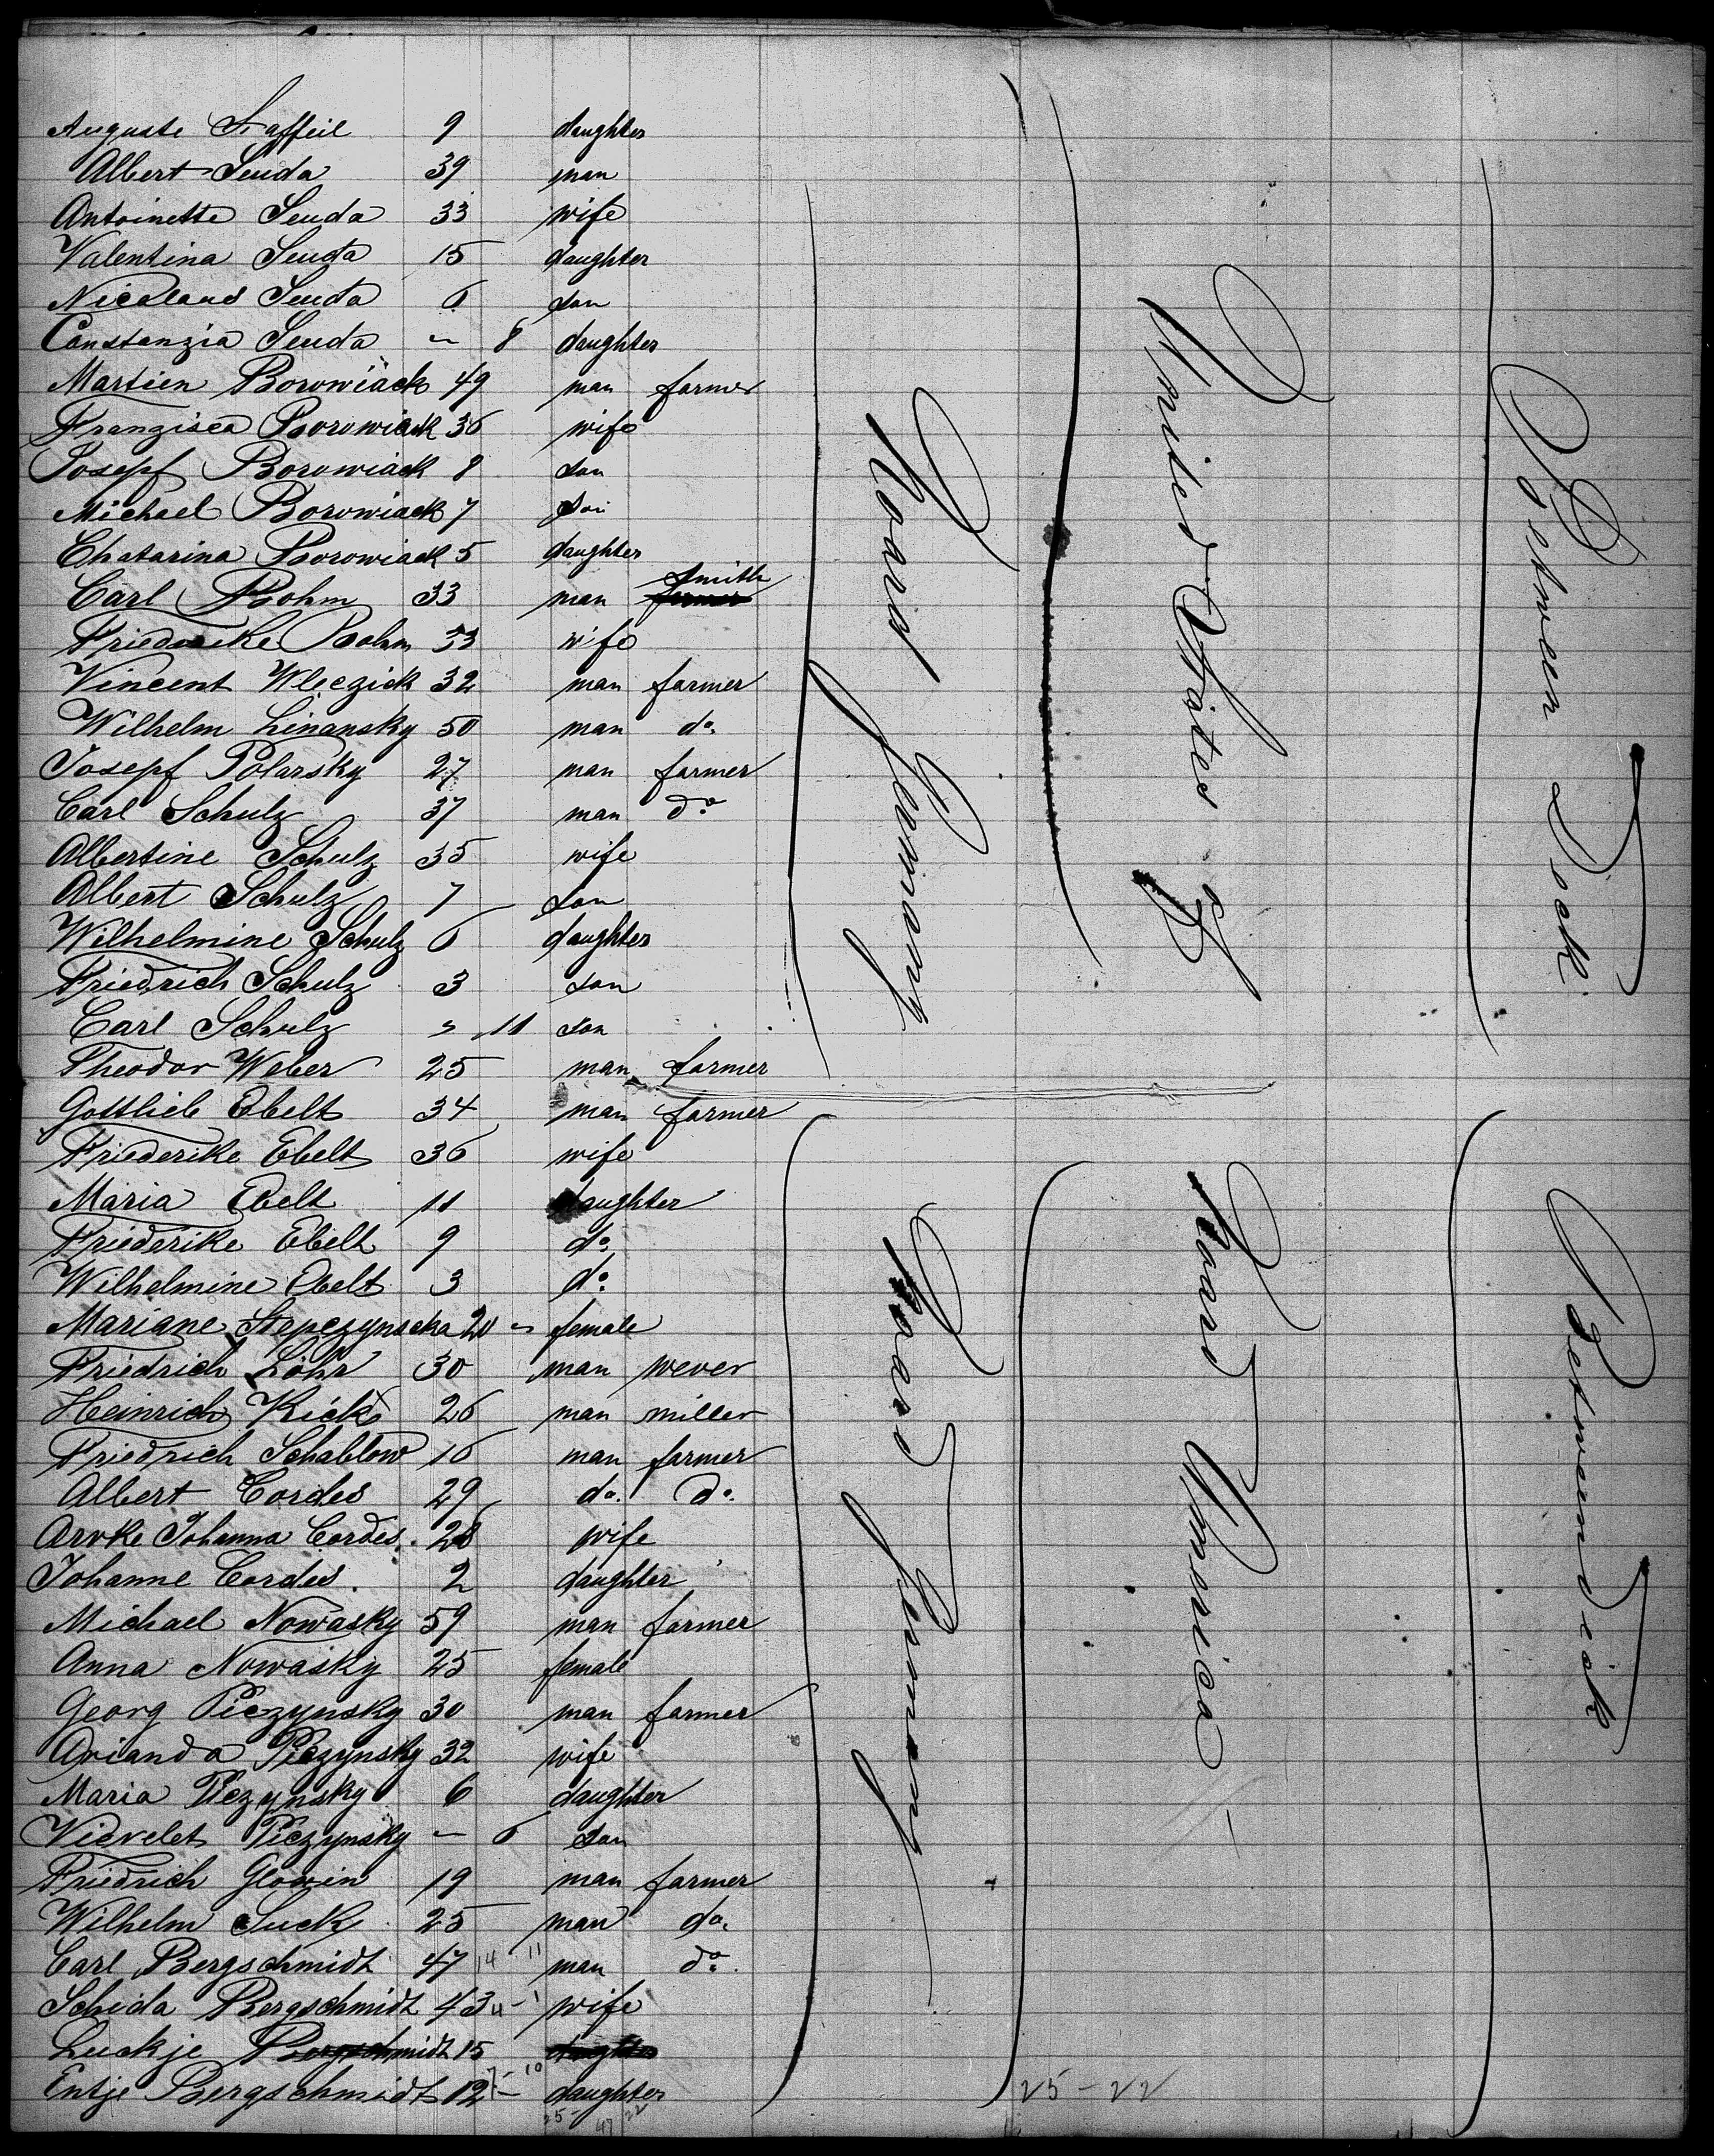 Auguste Staffeil 9 daughter
Albert Seuda 39 man
Antoinette Seuda 33 wife
Valentina Seuda 15 daughter
Nicolaus Seuda 6 son
Constanzia Seuda " 8 daughter
Martien Borowiack 49 man farmer
Franzisca Borowiack 36 wife
Josepf Borowiack 8 son
Michael Borowiack 7 son
Chatarina Borowiack 5 daughter
Carl Bohm 33 man smith
Friederike Bohm 33 wife
Vincent Wleczick 32 man farmer
Wilhelm Linansky 50 man do.
Josepf Polarsky 27 man farmer
Carl Schulz 37 man do
Albertine Schulz 35 wife
Albert Schulz 7 son
Wilhelmine Schulz 6 daughter
Friedrich Schulz 3 son
Carl Schulz " 11 son
Theodor Weber 25 man farmer
Gottlieb Ebelt 34 man farmer
Friederike Ebelt 36 wife
Maria Ebelt 11 daughter
Friederike Ebelt 9 do.
Wilhelmine Ebelt 3 do.
Mariane Stepczynscka 20 " female
Friedrich Löhr 30 man wever
Heinrich Kick 26 man miller
Friedrich Schablow 16 man farmer
Albert Cordes 29 do. do.
Arvke Johanna Cordes. 28 wife
Johanne Cordes. 2 daughter
Michael Nowasky 59 man farmer
Anna Nowasky 25 female
Georg Piczynsky 30 man farmer
Arianda Piczynsky 32 wife
Maria Piczynsky 6 daughter
Vievelet Piczynsky " 6 son
Friedrich Glowin 19 man farmer
Wilhelm Suck 25 man do.
Carl Bergschmidt 47 14 11 man do.
Schida Bergschmidt 43 4 - 1 wife
Luckje Bergschmidt 15 daughter
Entje Bergschmidt 12 7 - 10 daughter
25 - 47 22
25 - 22
Germany
United States of
Between Deck
Germany
America
Between Deck